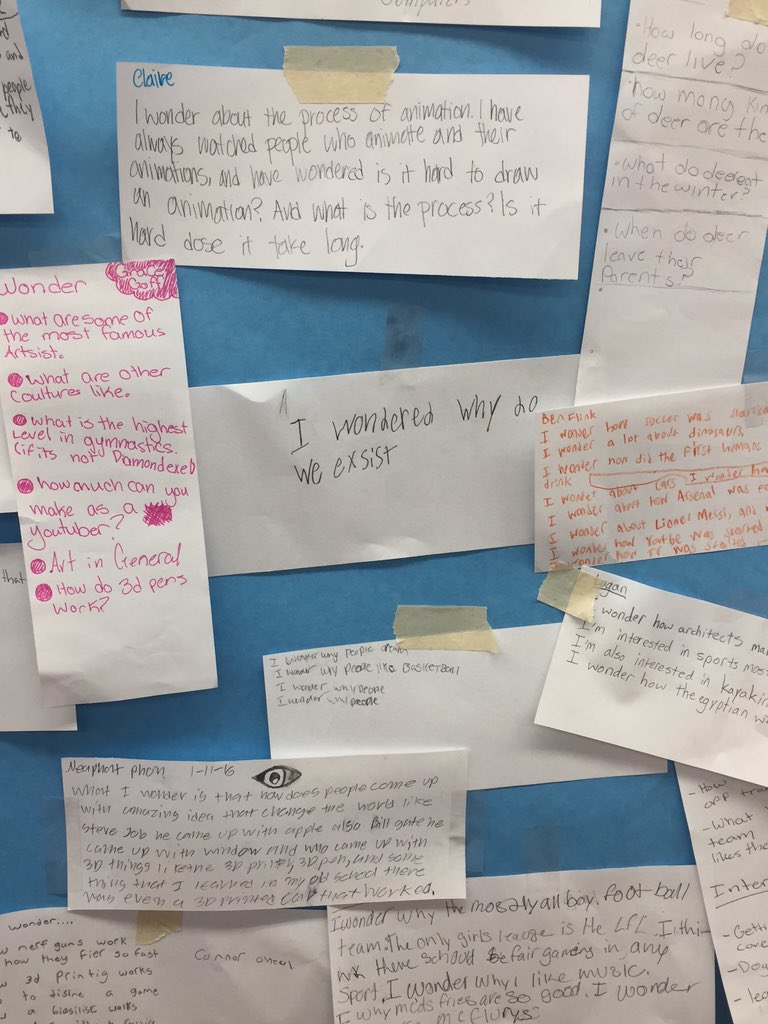 Computers
and
people
they
to
Claire
I wonder about the process of animation. I have
always watched people who animate and their
animations, and have wondered is it hard to draw
an animation? And what is the process? Is it
hard dose it take long.
•How long do
deer live?
•how many
of deer are
•What do deer eat
in the winter?
•When do deer
leave their
Parents?
Wonder
Grace
Goff
what are some of
the most famous
Artsist.
what are other
Coultures like.
what is the highest
Level in gymnastics.
(if its not Diamond
how much can you
make as a
youtuber?
Art in General
How do 3d pens
work?
I wondered why do
we exsist
Ben Flink
I wonder how soccer was
I wonder a lot about dinosaurs,
I wonder how did the first humans
drink
I wonder about cars I wonder how
I wonder about how Arsenal was
I wonder about Lionel Messi, and
I wonder how Youtube was started
I wonder how TV was
that
Logan
I wonder how architects
I'm interested in sports
I'm also interested in
I wonder how the egyptian
I wonder why People
I wonder why people like Basketball
I wonder why people
I wonder why people
phon 1-11-16
What I wonder is that how does people come up
with amazing idea that change the world like
Steve Job he came up with apple also Bill gate he
came up with window and who came up with
3D things like the 3D 3D pen, and some
thing that I learned in my old school there
was even a 3D printed car that worked.
-How
off
-What
team
likes the
-Dog
wonder....
nerf guns work
how they fier so fast
3d printig works
to disine a game
a basilisc walks
Connor oneal
I wonder why the mostly all boy football
team. The only girls leauge is the LFL I thi-
nk there school be fair gaming in any
Sport. I wonder why I like music.
I why mcds fries are so good. I wonder
mcflurys.